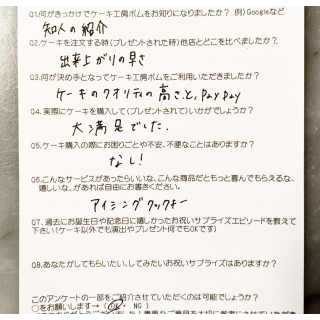 01.何がきっかけでケーキ工房ボムをお知りになりましたか？ 例)Googleなど
知人の紹介
02.ケーキを注文する時(プレゼントされた時)他店とどこを比べましたか？
出来上がりの早さ
03.何が決め手となってケーキ工房ボムをご利用いただきましたか？
ケーキのクオリティの高さと、PayPay
04.実際にケーキを購入して(プレゼントされて)いかがでしょうか？
大満足でした。
05.ケーキ購入の際にお困りごとや不安、不便なことはありますか？
なし！
06.こんなサービスがあったらいいな、こんな商品だともっと喜んでもらえるな、
嬉しいな、があれば自由にお書きください。
アイシングクッキー
07、過去にお誕生日や記念日に嬉しかったお祝いサプライズエピソードを教えて
下さい(ケーキ以外でも演出やプレゼント何でもOKです)
08.あなたがしてもらいたい、してみたいお祝いサプライズはありますか？
このアンケートの一部をご紹介させていただくのは可能でしょうか？
○をお願いします→ ( OK ・ NG )